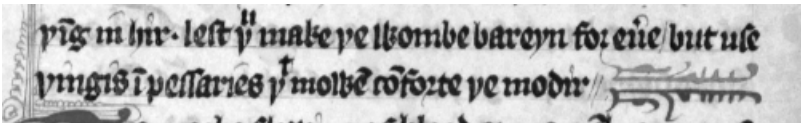 yīg in hir · lest yͧ make ye wombe bareyn for eu̾e / but use
yingis ī pessaries yͭ mowē cōforte ye modir //